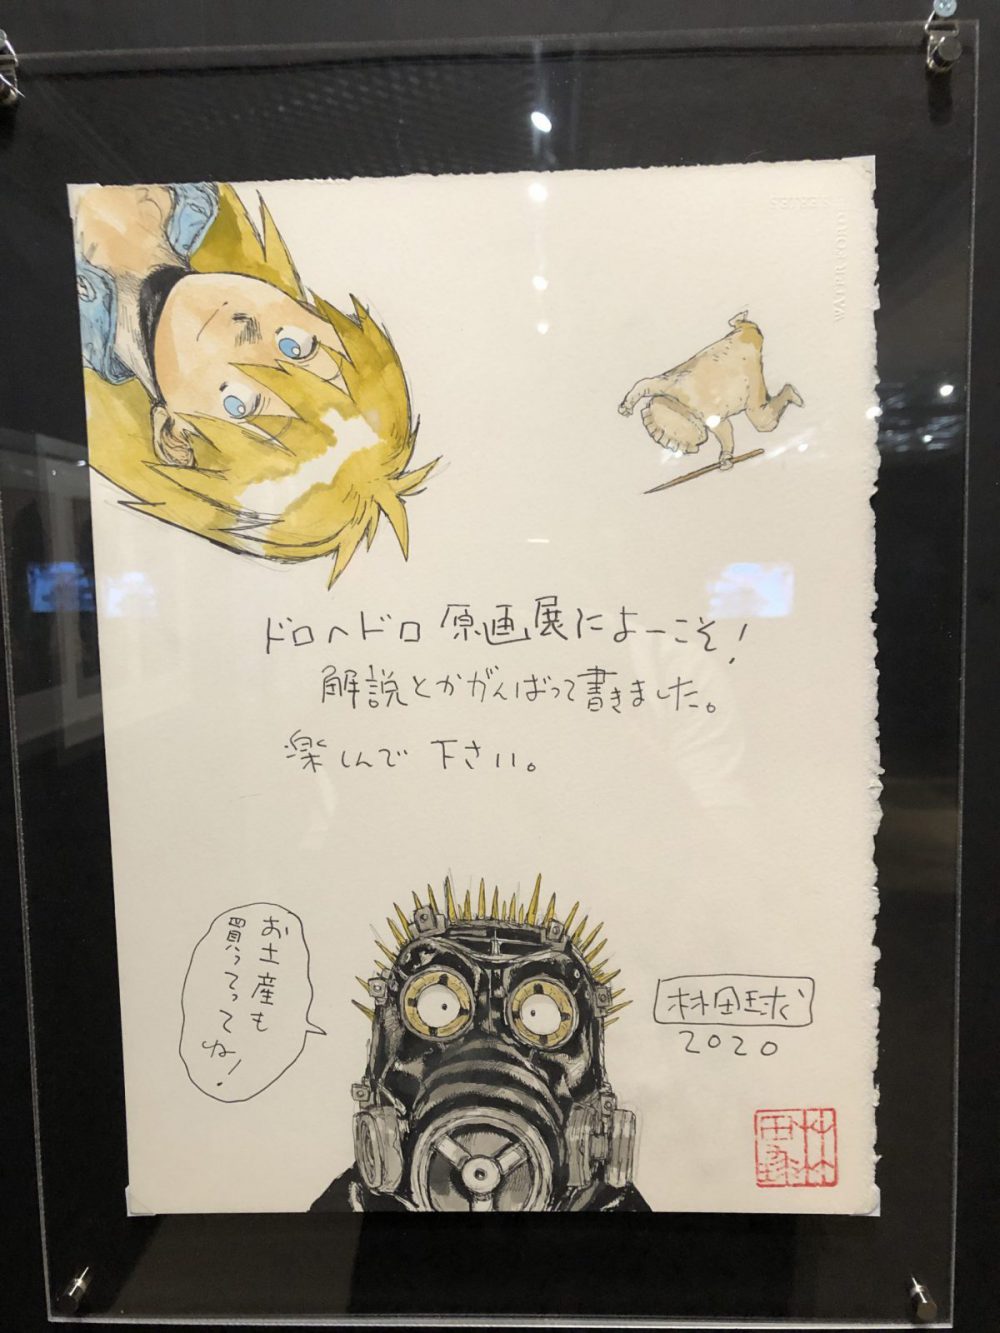 ドロヘドロ原画展によーこそ!
解説とかがんばって書きました。
楽しんで下さい。
お土産も
買ってってね!
林田球
2020